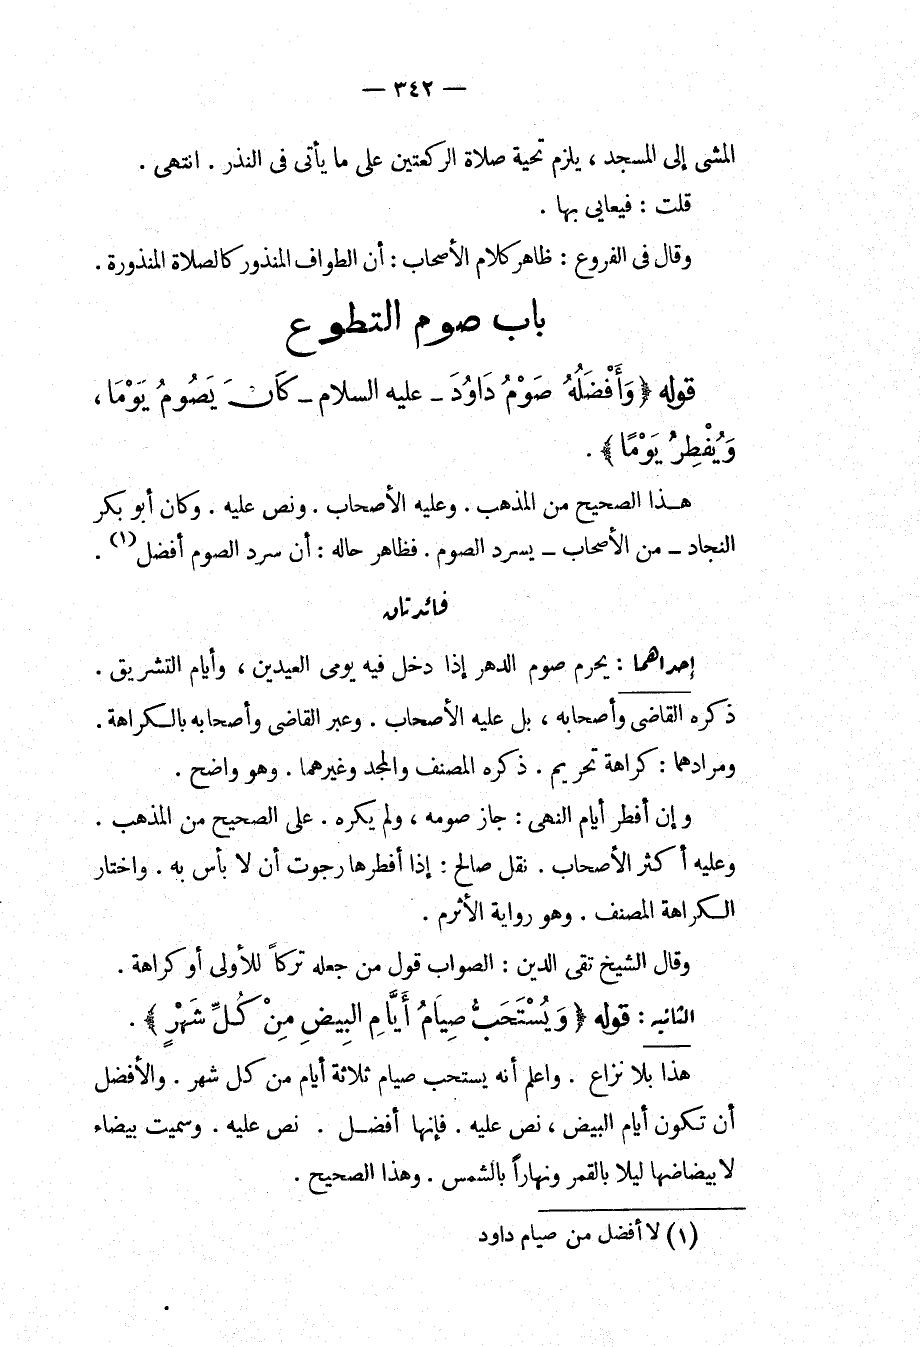 — ٣٤٢ —
المشى إلى المسجد ، يلزم تحية صلاة الركعتين على ما يأتى فى النذر . انتهى .
قلت : فيعايى بها .
وقال فى الفروع : ظاهر كلام الأصحاب : أن الطواف المنذور كالصلاة المنذورة .
باب صوم التطوع
قوله ﴿ وَأَفْضَلُهُ صَوْمُ دَاوُدَ ـ عليه السلام ـ كَانَ يَصُومُ يَوْمًا ،
وَيُفْطِرُ يَوْمًا ﴾ .
هـذا الصحيح من المذهب . وعليه الأصحاب . ونص عليه . وكان أبو بكر
النجاد ـ من الأصحاب ـ يسرد الصوم . فظاهر حاله : أن سرد الصوم أفضل (١) .
فائدتان
إحداهما : يحرم صوم الدهر إذا دخل فيه يومى العيدين ، وأيام التشريق .
ذكره القاضى وأصحابه ، بل عليه الأصحاب . وعبر القاضى وأصحابه بالـكراهة .
ومرادهما : كراهة تحريم . ذكره المصنف والمجد وغيرهما . وهو واضح .
وإن أفطر أيام النهى : جاز صومه ، ولم يكره . على الصحيح من المذهب .
وعليه أكثر الأصحاب . نقل صالح : إذا أفطرها رجوت أن لا بأس به . واختار
الـكراهة المصنف . وهو رواية الأثرم .
وقال الشيخ تقى الدين : الصواب قول من جعله تركاً للأولى أو كراهة .
الثانية : قوله ﴿ وَيُسْتَحَبُّ صِيَامُ أَيَّامِ البِيضِ مِنْ كُلِّ شَهْرٍ ﴾ .
هذا بلا نزاع . واعلم أنه يستحب صيام ثلاثة أيام من كل شهر . والأفضل
أن تـكون أيام البيض ، نص عليه . فإنها أفضـل . نص عليه . وسميت بيضاء
لا بيضاضها ليلا بالقمر ونهاراً بالشمس . وهذا الصحيح .
(١) لا أفضل من صيام داود